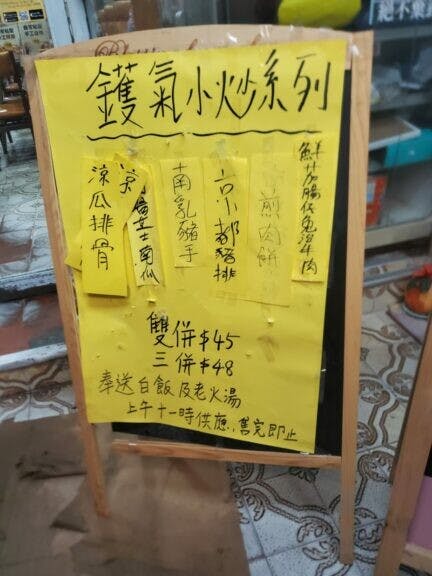 鑊氣小炒系列
涼瓜排骨
芝士南瓜
南乳豬手
京都豬排
煎肉餅
鮮茄腸仔免治牛肉
雙併$45
三併$48
奉送白飯及老火湯
上午十一時供應,售完即止